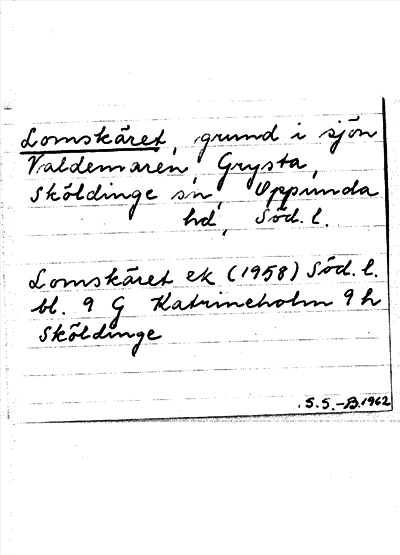 Lomskäret, grund i sjön
Valdemaren, Grysta,
Sköldinge sn, Oppunda
hd, Söd. l.
Lomskäret ek (1958) Söd. l.
bl. 9 G Katrineholm 9 h
Sköldinge
S.S.-B. 1962